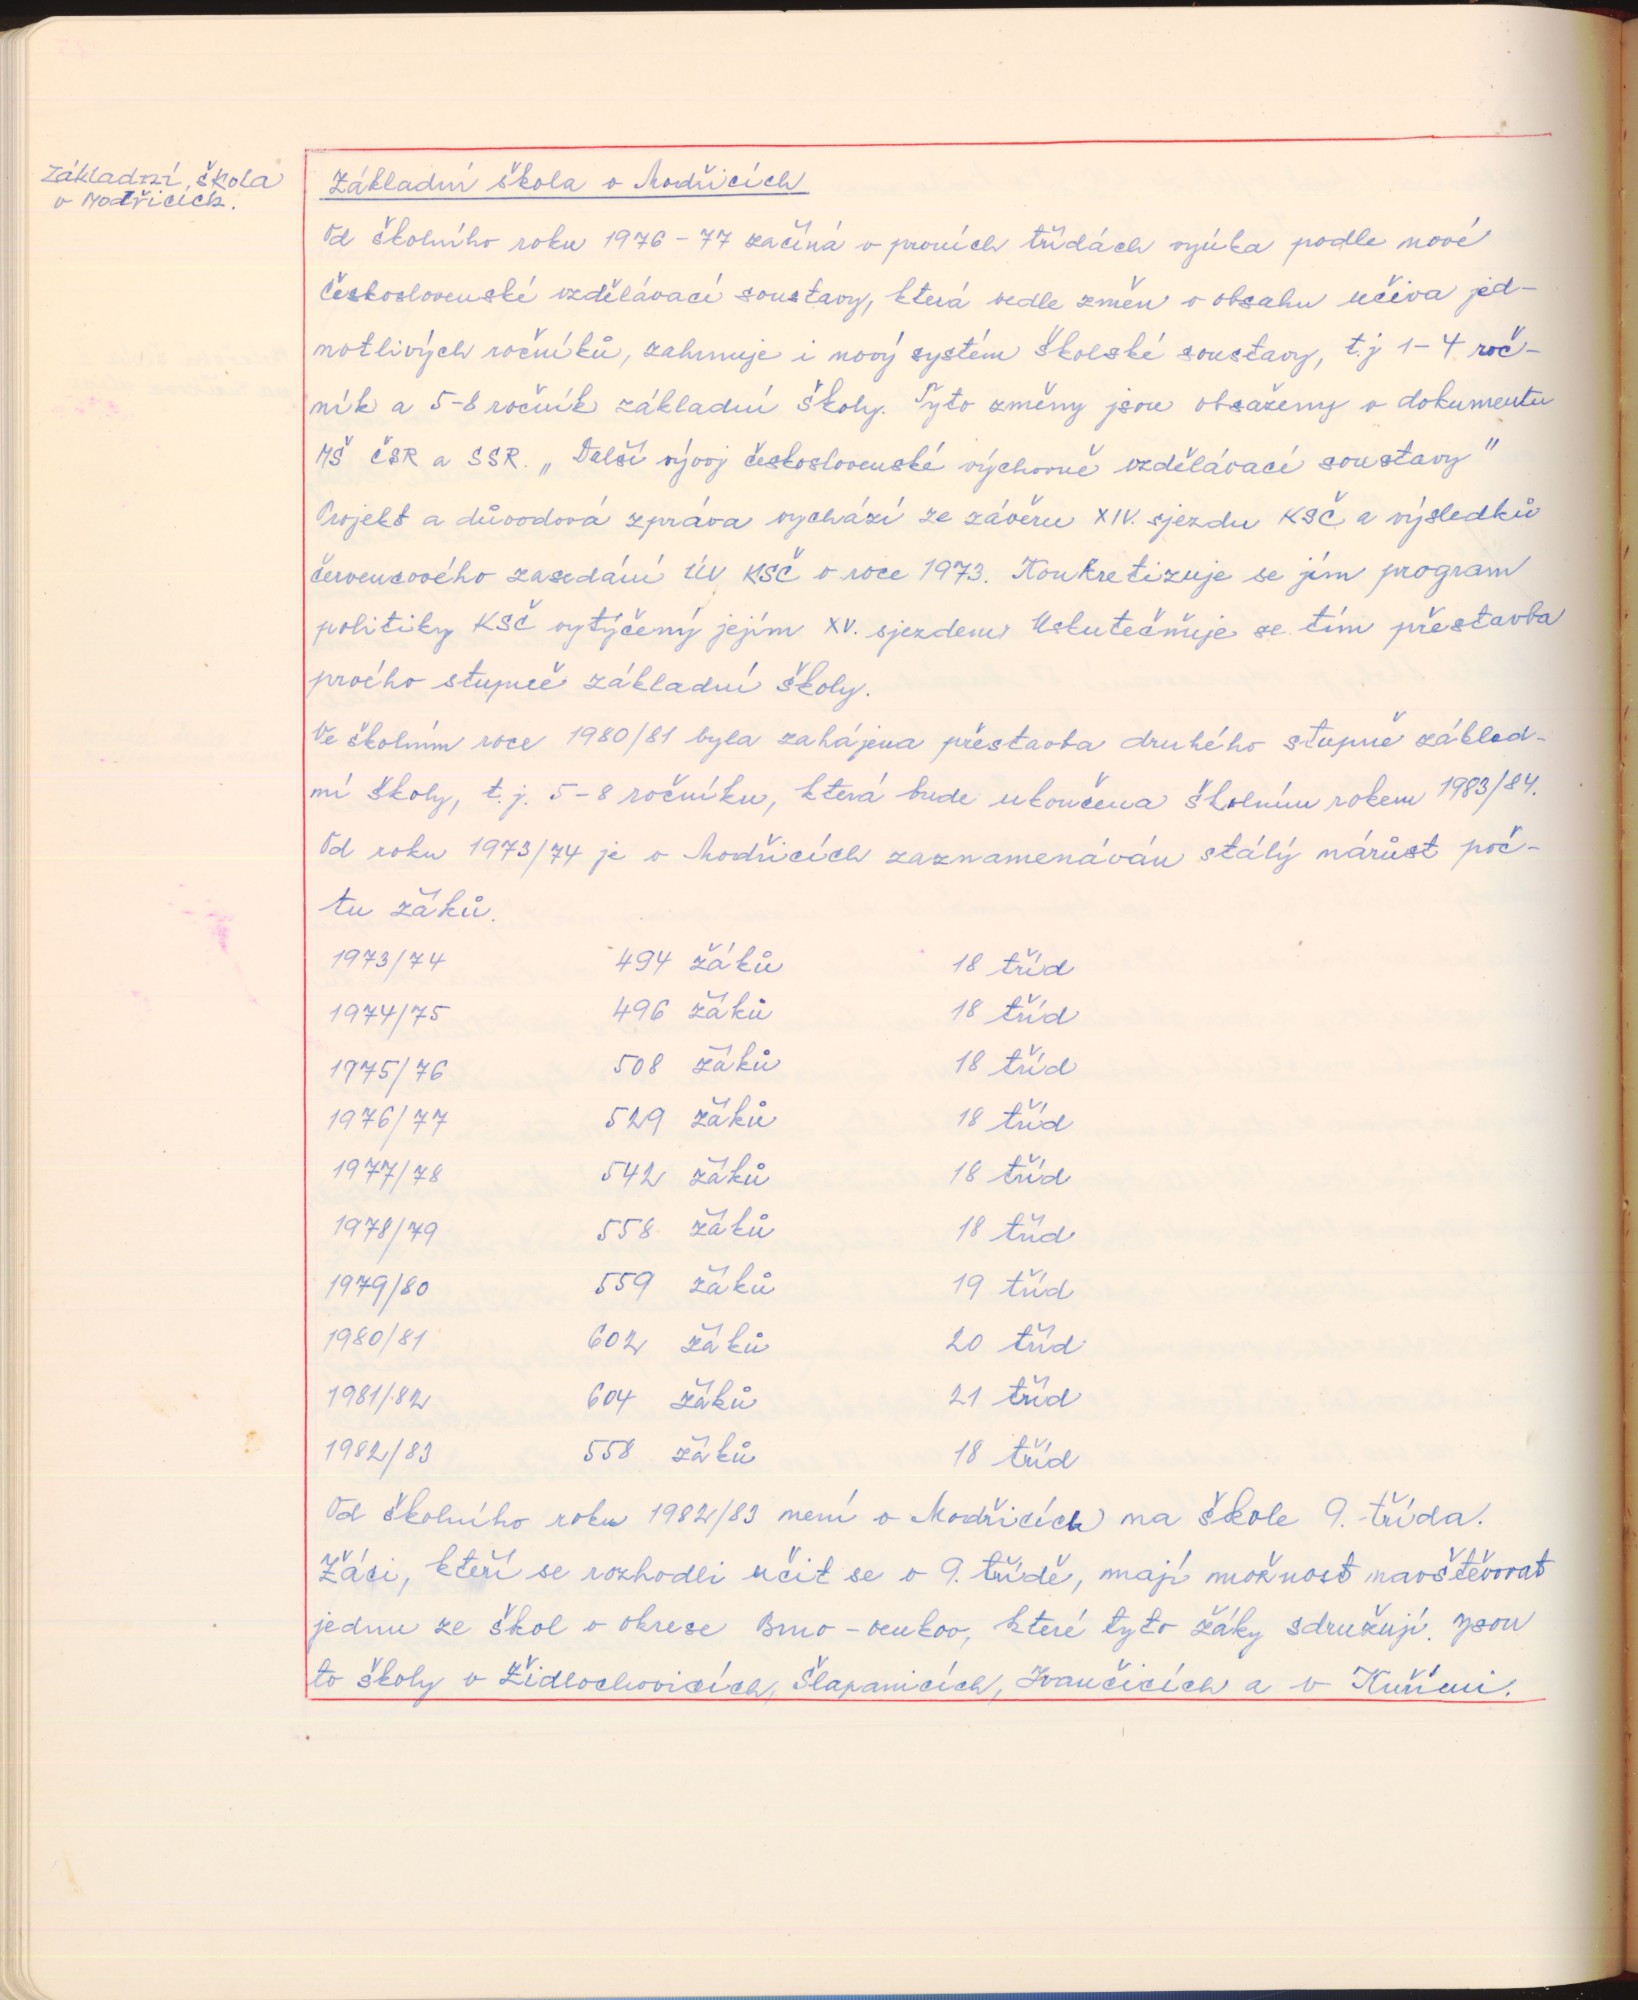 Základní škola
v Modřicích.
Základní škola v Modřicích
Od školního roku 1976-77 začíná v prvních třídách výuka podle nové
československé vzdělávací soustavy, která vedle změn v obsahu učiva jed-
notlivých ročníků, zahrnuje i nový systém školské soustavy, t.j 1-4 roč-
ník a 5-8 ročník základní školy. Tyto změny jsou obsaženy v dokumentu
MŠ ČSR a SSR. „Další vývoj československé výchovně vzdělávací soustavy"
Projekt a důvodová zpráva vychází ze závěru XIV. sjezdu KSČ a výsledků
červencového zasedání ÚV KSČ v roce 1973. Konkretizuje se jím program
politiky KSČ vytýčený jejím XV. sjezdem. Uskutečňuje se tím přestavba
prvého stupně základní školy.
Ve školním roce 1980/81 byla zahájena přestavba druhého stupně základ-
ní školy, t.j. 5-8 ročníku, která bude ukončena školním rokem 1983/84.
Od roku 1973/74 je v Modřicích zaznamenáván stálý nárůst poč-
tu žáků.
1973/74 494 žáků 18 tříd
1974/75 496 žáků 18 tříd
1975/76 508 žáků 18 tříd
1976/77 529 žáků 18 tříd
1977/78 542 žáků 18 tříd
1978/79 558 žáků 18 tříd
1979/80 559 žáků 19 tříd
1980/81 602 žáků 20 tříd
1981/82 604 žáků 21 tříd
1982/83 558 žáků 18 tříd
Od školního roku 1982/83 není v Modřicích na škole 9. třída.
Žáci, kteří se rozhodli učit se v 9. třídě, mají možnost navštěvovat
jednu ze škol v okrese Brno-venkov, které tyto žáky sdružují. Jsou
to školy v Židlochovicích, Šlapanicích, Ivančicích a v Kuřimi.